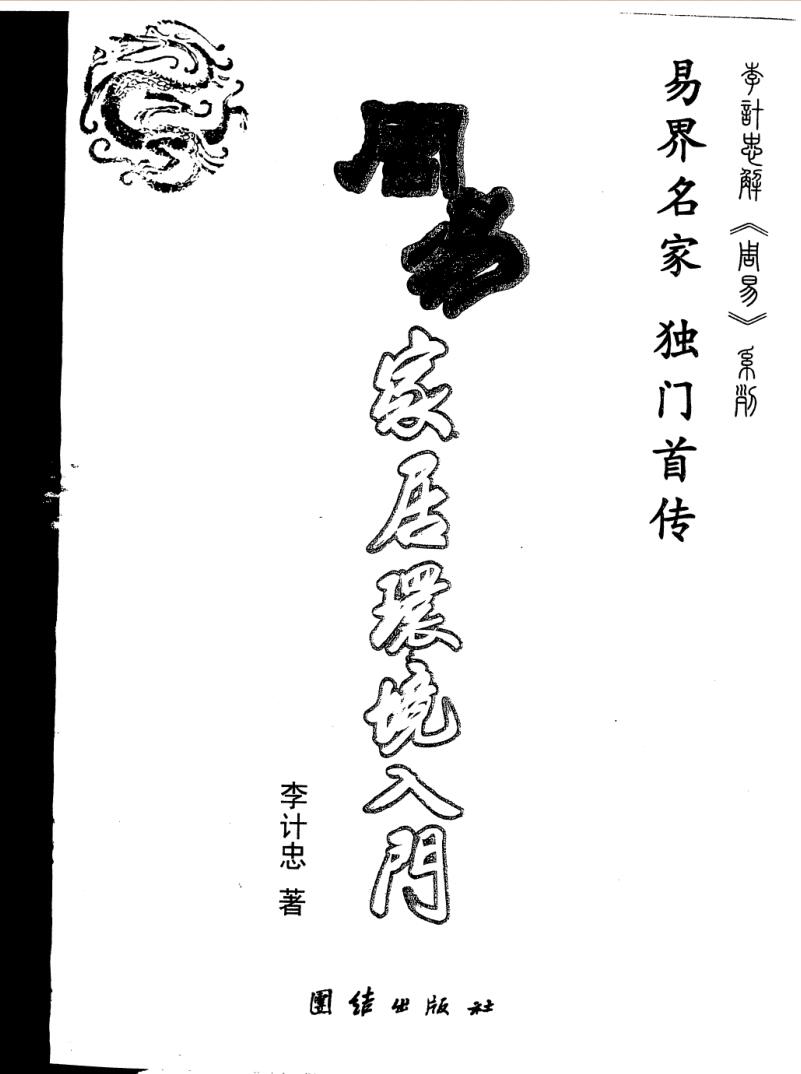 李計忠解《周易》系列
易界名家 独门首传
周易
家居環境入門
李计忠 著
團结出版社